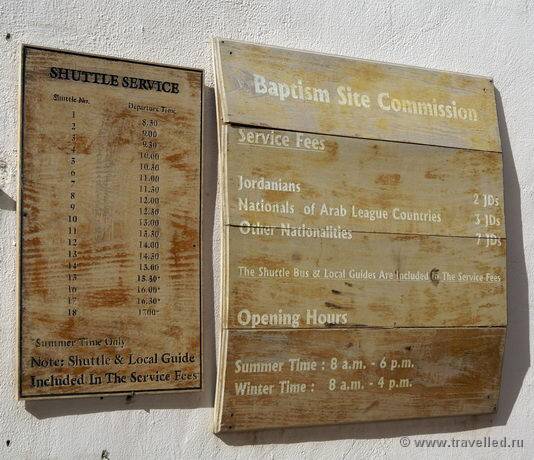 SHUTTLE SERVICE
Shuttle No. Departure Time
1 8.30
2 9.00
3 9.30
4 10.00
5 10.30
6 11.00
7 11.30
8 12.00
9 12.30
10 13.00
11 13.30
12 14.00
13 14.30
14 15.00
15 15.30*
16 16.00*
17 16.30*
18 17.00*
*Summer Time Only
Note: Shuttle & Local Guide
Included In The Service Fees
Baptism Site Commission
Service Fees
Jordanians 2 JDs
Nationals of Arab League Countries 3 JDs
Other Nationalities 7 JDs
The Shuttle Bus & Local Guides Are Included In The Service Fees
Opening Hours
Summer Time : 8 a.m. - 6 p.m.
Winter Time : 8 a.m. - 4 p.m.
© www.travelled.ru